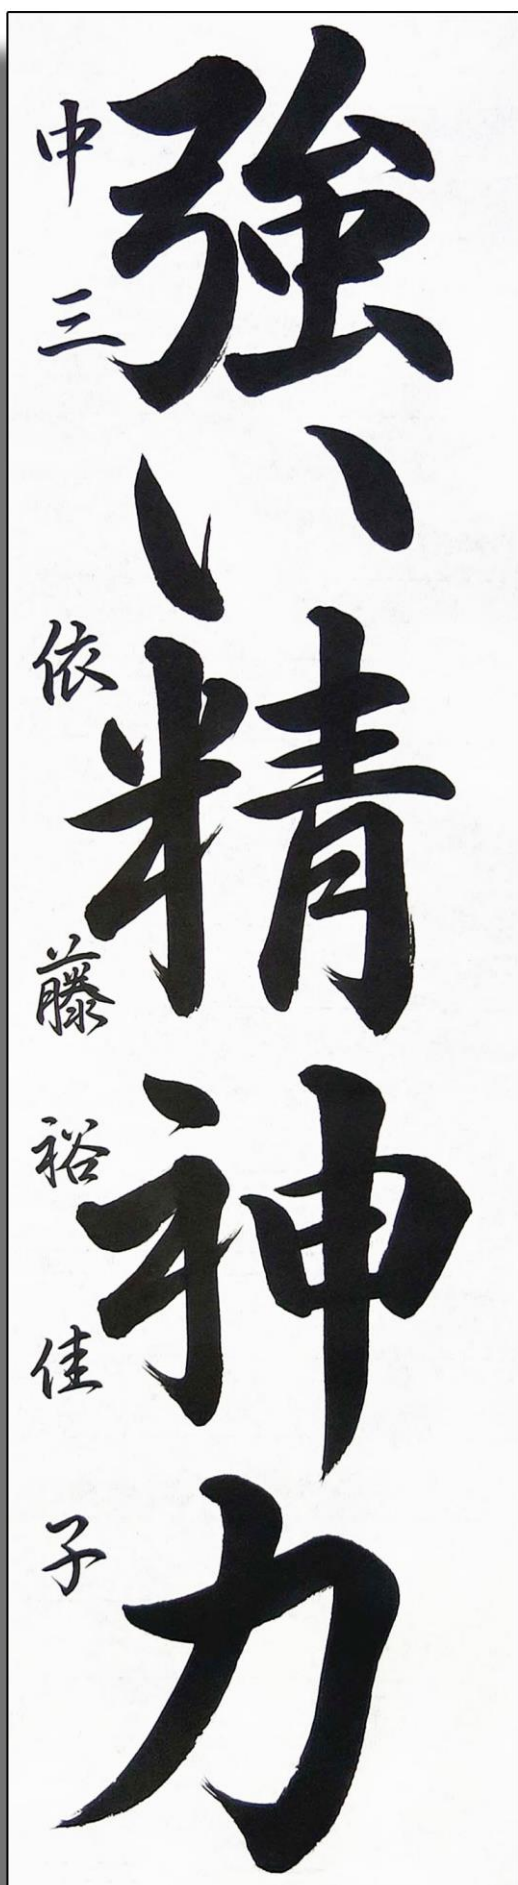 強い精神力
中三 依藤裕佳子